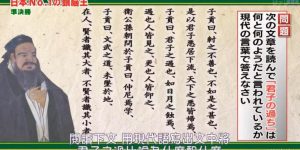 日本No.1の頭脳王
準決勝
問題
次の文章を読んで「君子の過ち」は
何と何のようだと言われているか
現代の言葉で答えなさい
子貢曰、紂之不善也、不如是之甚也。
是以君子惡居下流、天下之惡皆歸焉。
子貢曰、君子之過也、如日月之蝕焉。
過也人皆見之、更也人皆仰之。
衛公孫朝問於子貢曰、仲尼焉學。
子貢曰、文武之道、未墜於地、
在人、賢者識其大者、不賢者識其小
閱讀下文 用現代語寫出文中將